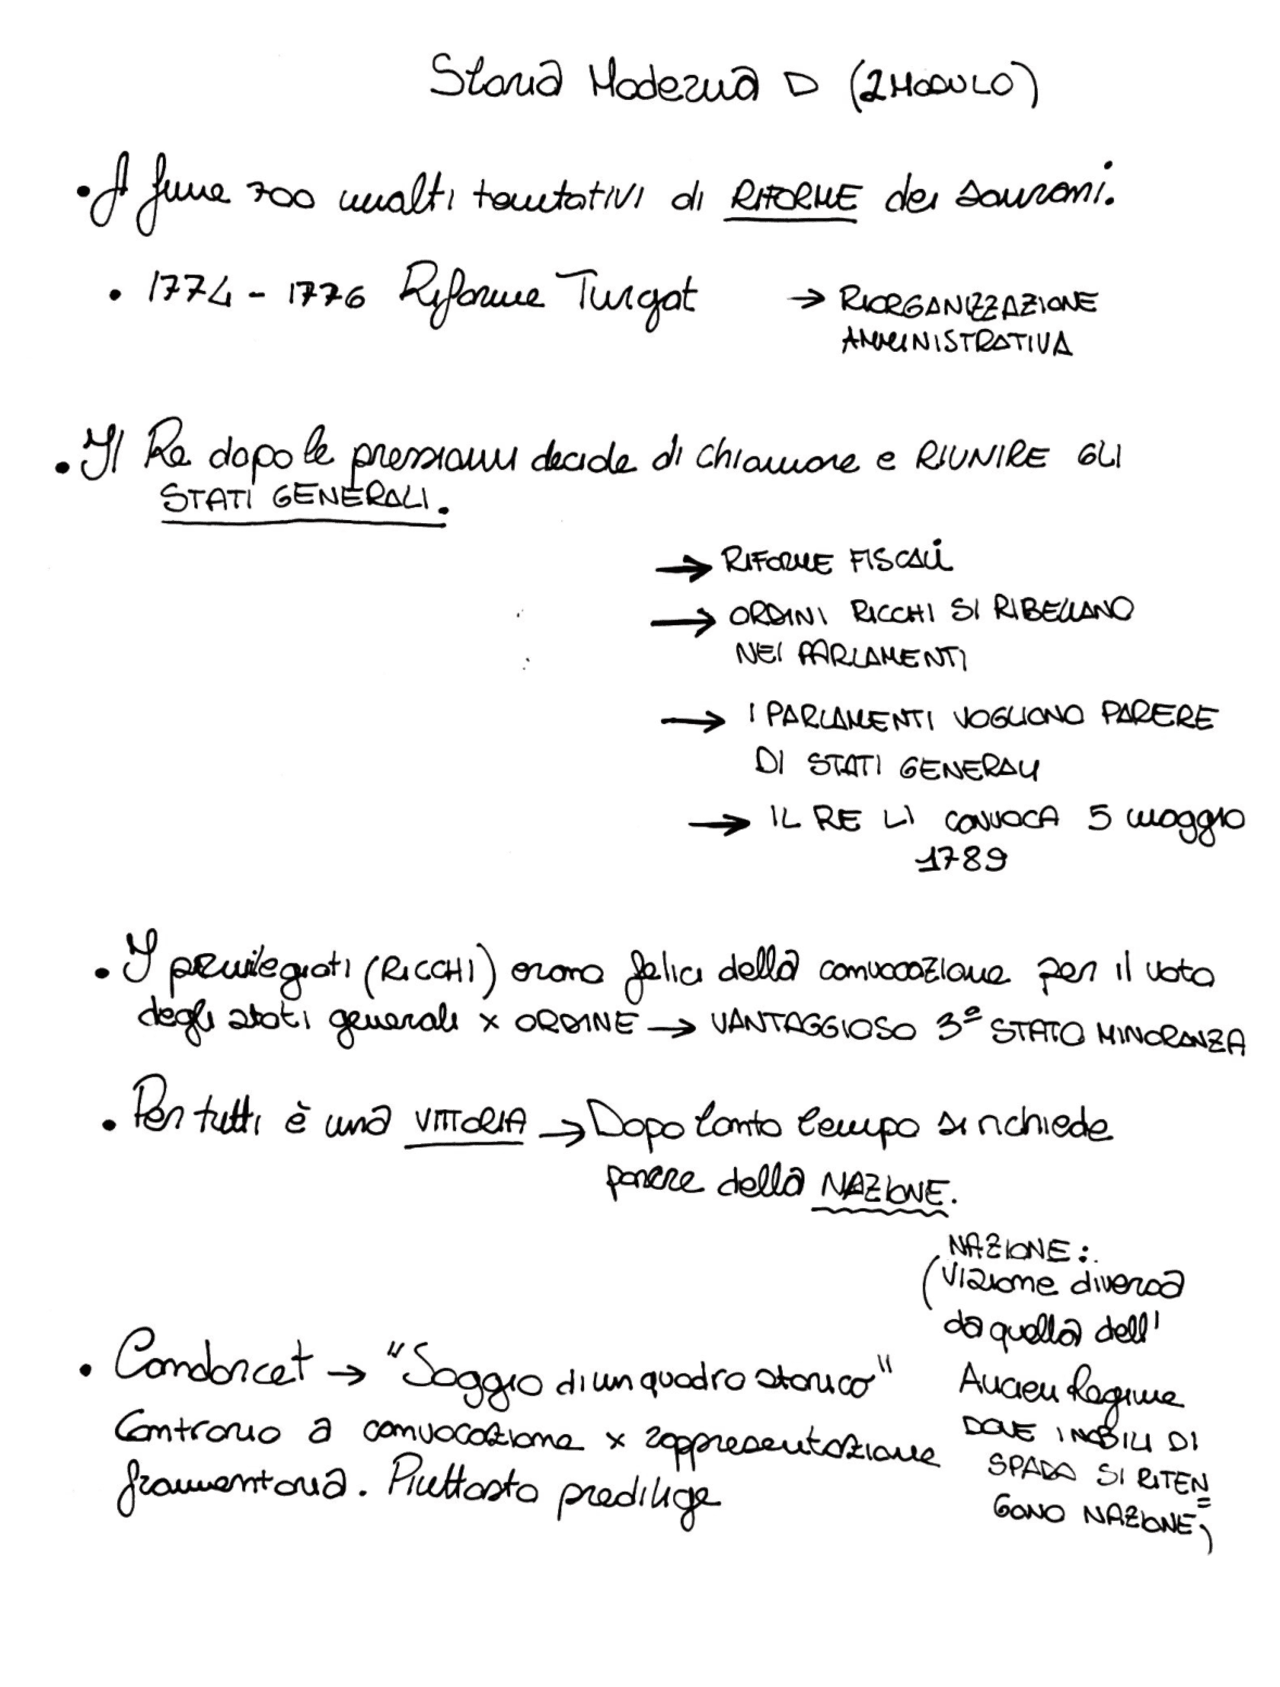 Storia Moderna D (2 MODULO)
• A fine 700 molti tentativi di RIFORME dei sovrani.
• 1774 - 1776 Riforme Turgot → RIORGANIZZAZIONE
AMMINISTRATIVA
• Il Re dopo le pressioni decide di chiamare e RIUNIRE GLI
STATI GENERALI.
→ RIFORME FISCALI
→ ORDINI RICCHI SI RIBELLANO
NEI PARLAMENTI
→ I PARLAMENTI VOGLIONO PARERE
DI STATI GENERALI
→ IL RE LI CONVOCA 5 maggio
1789
• I privilegiati (RICCHI) erano felici della convocazione per il voto
degli stati generali x ORDINE → VANTAGGIOSO 3º STATO MINORANZA
• Per tutti è una VITTORIA → Dopo tanto tempo si richiede
parere della NAZIONE.
NAZIONE:
(Visione diversa
da quella dell'
Ancien Regime
DOVE I NOBILI DI
SPADA SI RITEN=
GONO NAZIONE)
• Condorcet → "Saggio di un quadro storico"
Contrario a convocazione x rappresentazione
frammentaria. Piuttosto predilige